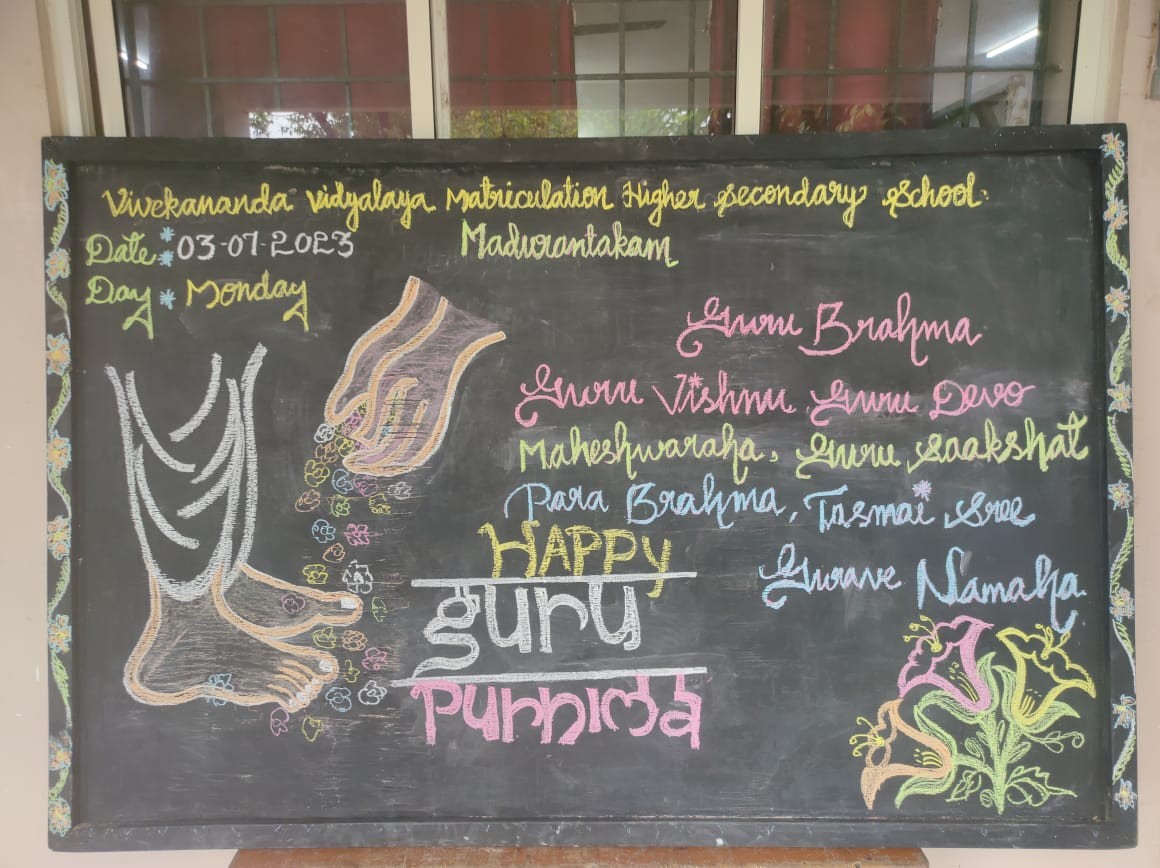 Vivekananda Vidyalaya Matriculation Higher Secondary School.
Madurantakam
Date : 03-07-2023
Day : Monday
Guru Brahma
Guru Vishnu, Guru Devo
Maheshwaraha, Guru Saakshat
Para Brahma, Tasmai Sree
Gurave Namaha.
HAPPY
guru
Purnima